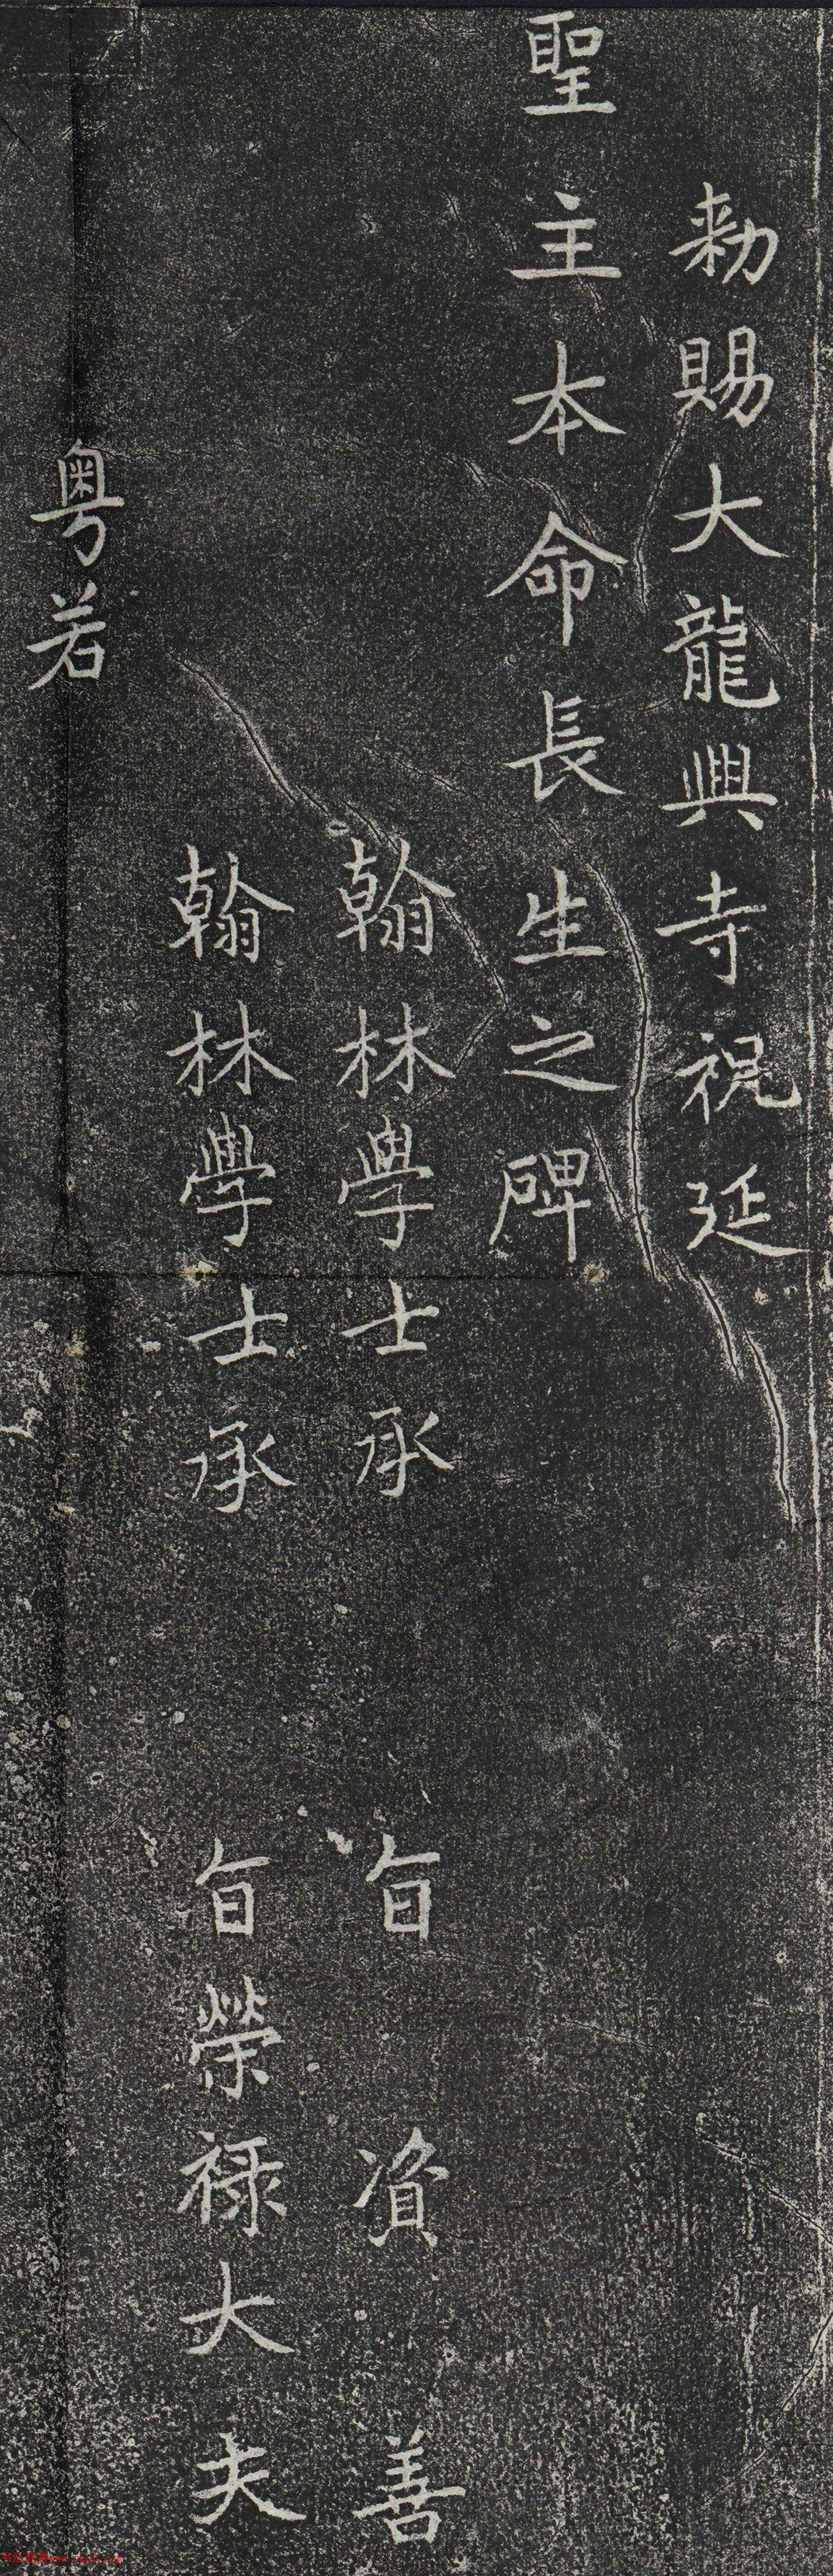 勑賜大龍興寺祝延
聖主本命長生之碑
翰林學士承旨資善
翰林學士承旨榮祿大夫
粵若